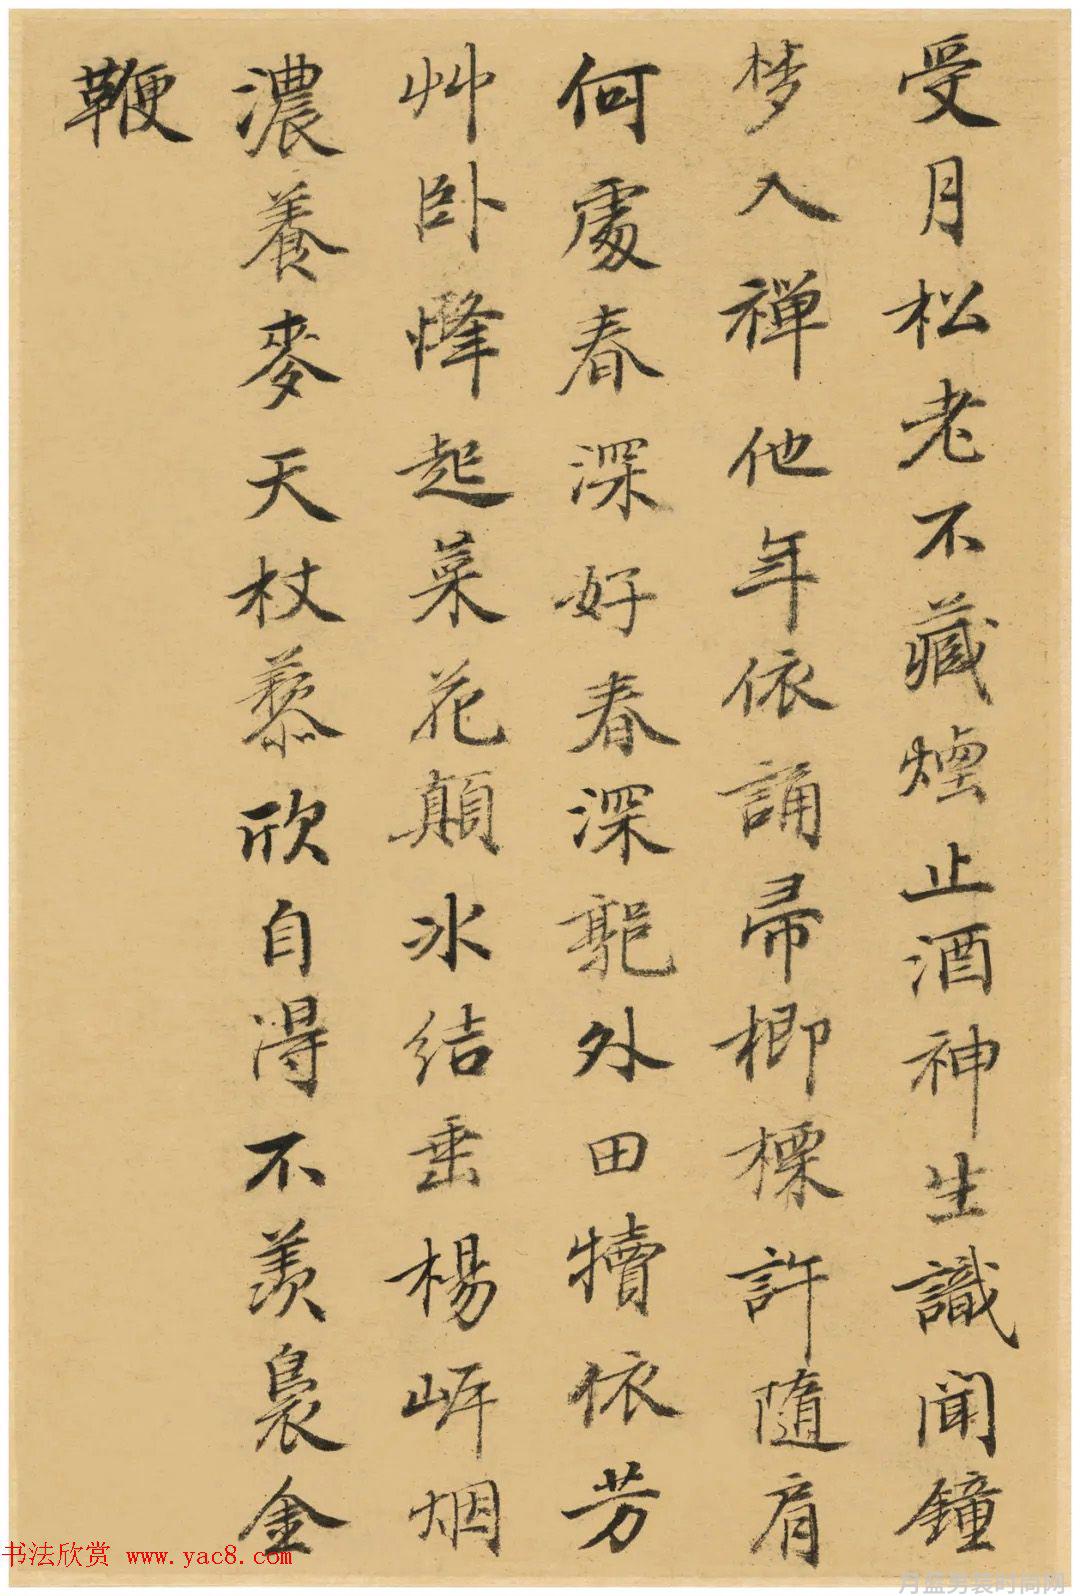 受月松老不藏煙止酒神生識聞鐘
梦入禅他年依誦帚楖許隨肩
何處春深好春深郭外田犢依芳
艸卧起菜花顛冰結垂楊岸烟
濃養麥天杖藜欣自得不羨裊金
鞭
书法欣赏 www.yac8.com